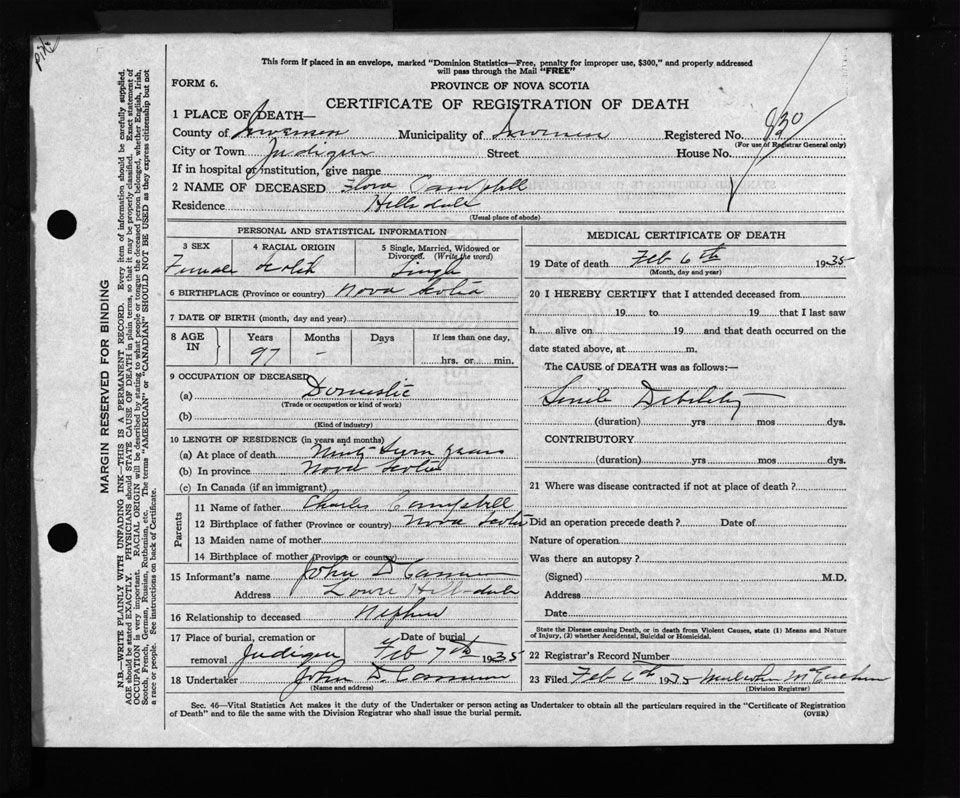 This form if placed in an envelope, marked "Dominion Statistics—Free, penalty for improper use, $300," and properly addressed
will pass through the Mail "FREE"
FORM 6.
PROVINCE OF NOVA SCOTIA
CERTIFICATE OF REGISTRATION OF DEATH
MARGIN RESERVED FOR BINDING
N.B.—WRITE PLAINLY WITH UNFADING INK—THIS IS A PERMANENT RECORD. Every item of information should be carefully supplied.
AGE should be stated EXACTLY. PHYSICIANS should STATE CAUSE OF DEATH in plain terms, so that it may be properly classified. Exact statement of
OCCUPATION is very important. RACIAL ORIGIN will be described by stating to what people or tongue the deceased person belonged, whether English, Irish,
Scotch, French, German, Russian, Ruthenian, etc. The terms "AMERICAN" or "CANADIAN" SHOULD NOT BE USED as they express citizenship but not
a race or people. See instructions on back of Certificate.
1 PLACE OF DEATH—
County of Inverness Municipality of Inverness Registered No. 830
(For use of Registrar General only)
City or Town Judique Street House No.
If in hospital or institution, give name
2 NAME OF DECEASED Flora Campbell
Residence Hillsdale
(Usual place of abode)
PERSONAL AND STATISTICAL INFORMATION
3 SEX 4 RACIAL ORIGIN 5 Single, Married, Widowed or
Divorced. (Write the word)
Female Scotch Single
6 BIRTHPLACE (Province or country) Nova Scotia
7 DATE OF BIRTH (month, day and year)
8 AGE IN Years Months Days If less than one day,
97 - hrs. or min.
9 OCCUPATION OF DECEASED
(a) Domestic
(Trade or occupation or kind of work)
(b)
(Kind of industry)
10 LENGTH OF RESIDENCE (in years and months)
(a) At place of death Ninty Seven years
(b) In province Nova Scotia
(c) In Canada (if an immigrant)
Parents
11 Name of father Charles Campbell
12 Birthplace of father (Province or country) Nova Scotia
13 Maiden name of mother
14 Birthplace of mother (Province or country)
15 Informant's name John D
Address Hillsdale
16 Relationship to deceased Nephew
17 Place of burial, cremation or Date of burial
removal Judique Feb 7th 1935
18 Undertaker John D.
(Name and address)
MEDICAL CERTIFICATE OF DEATH
19 Date of death Feb 6th 1935
(Month, day and year)
20 I HEREBY CERTIFY that I attended deceased from
19 to 19 that I last saw
h alive on 19 and that death occurred on the
date stated above, at m.
The CAUSE of DEATH was as follows:—
Senile Debility
(duration) yrs mos dys.
CONTRIBUTORY
(duration) yrs mos dys.
21 Where was disease contracted if not at place of death?
Did an operation precede death? Date of
Nature of operation
Was there an autopsy?
(Signed) M.D.
Address
Date
State the Disease causing Death, or in death from Violent Causes, state (1) Means and Nature
of Injury, (2) whether Accidental, Suicidal or Homicidal.
22 Registrar's Record Number
23 Filed Feb 6th 1935
(Division Registrar)
Sec. 46—Vital Statistics Act makes it the duty of the Undertaker or person acting as Undertaker to obtain all the particulars required in the "Certificate of Registration
of Death" and to file the same with the Division Registrar who shall issue the burial permit.
(OVER)